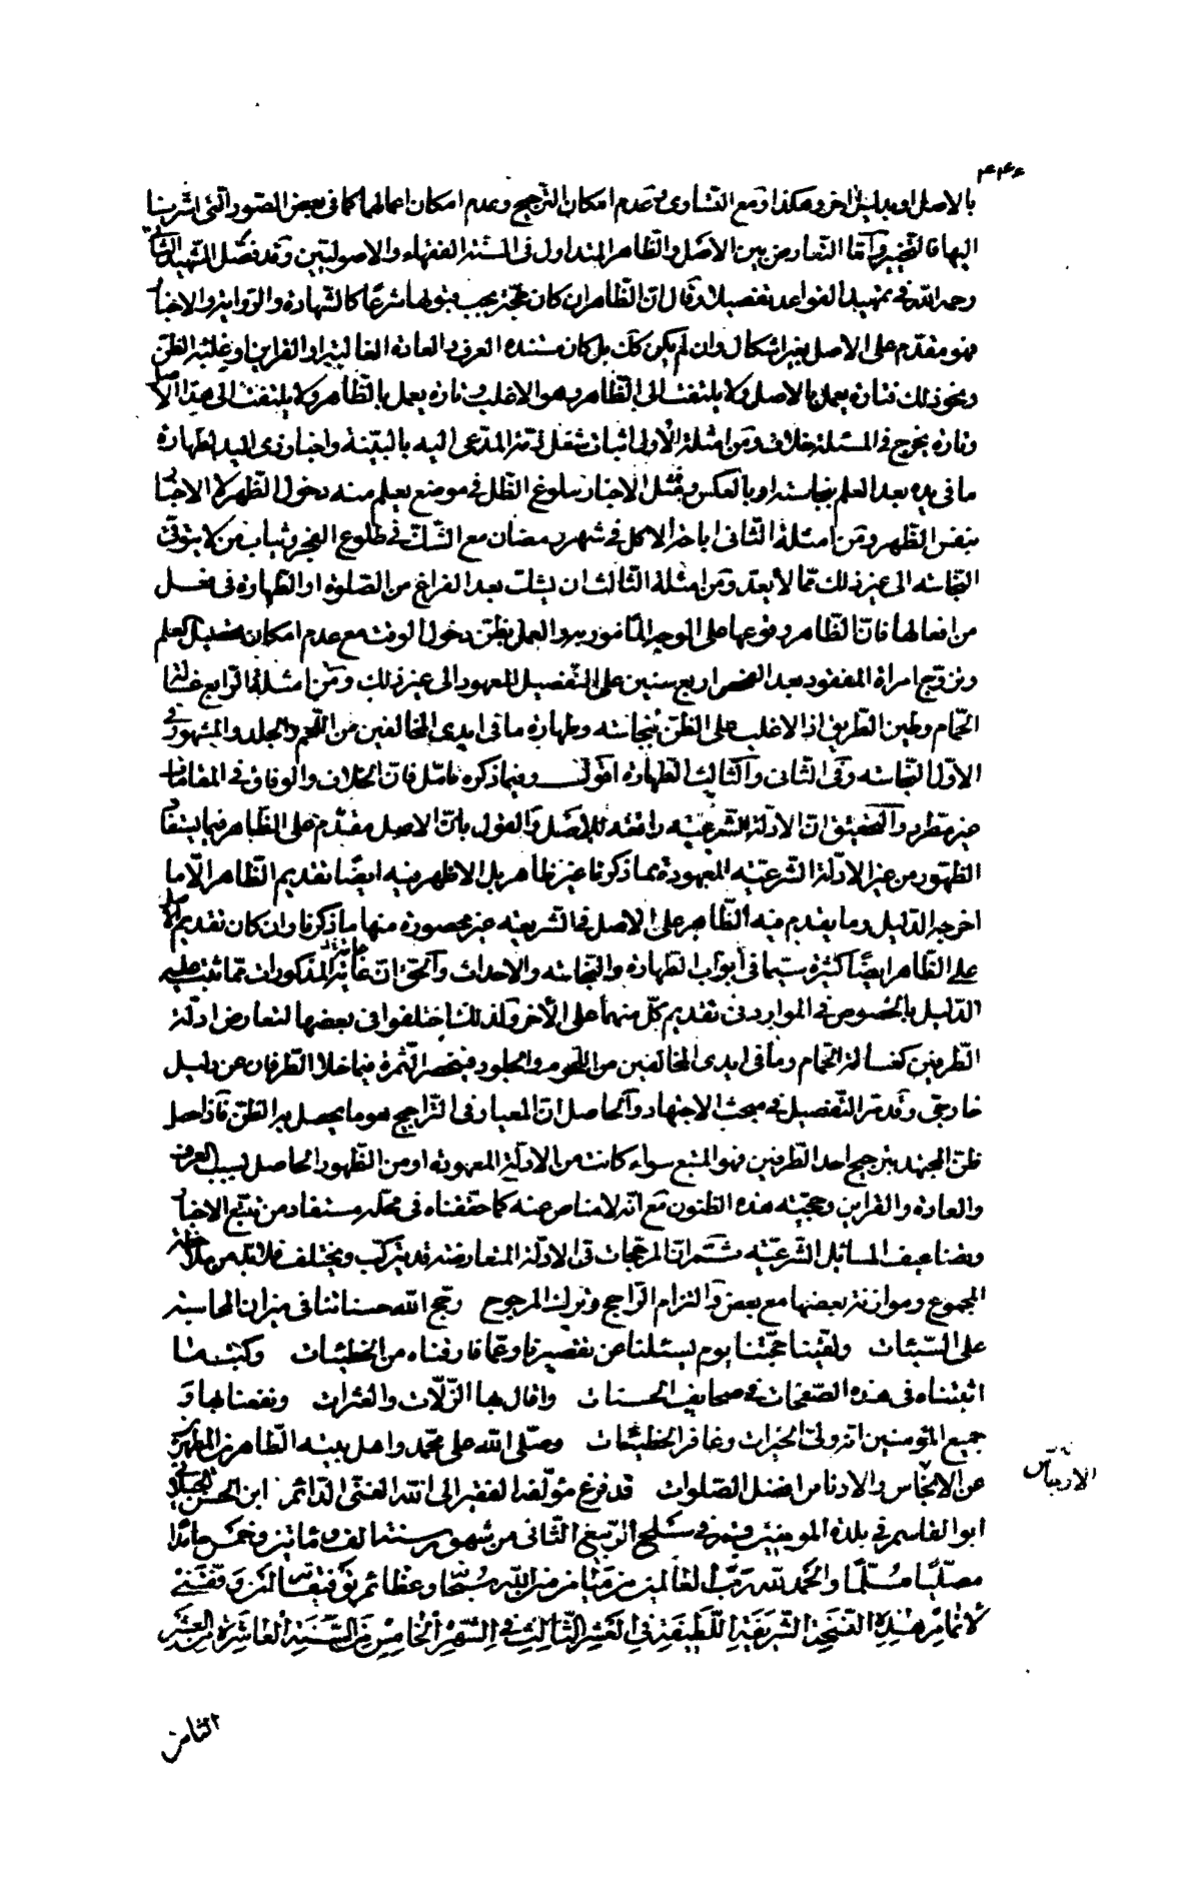 ۴۴۴
بالاصل او بدليل اخر وهكذا ومع التساوى وعدم امكان الترجيح وعدم امكان اعمالهما كما فى بعض الصور التى اشرنا
اليها فالتخيير وامّا التعارض بين الاصل والظاهر المتداول فى السنة الفقهاء والاصوليّين وقد فصّل الشهيد الثانى
رحمه الله فى تمهيد القواعد تفصيلا وقال انّ الظاهر ان كان حجّة يجب قبولها شرعًا كالشهادة والرواية والاخبار
فهو مقدّم على الاصل بغير اشكال وان لم يكن كك بل كان مستنده العرف والعادة الغالبة او القراين او غلبة الظنّ
ونحو ذلك فتارة يعمل بالاصل ولا يلتفت الى الظاهر وهو الاغلب وتارة يعمل بالظاهر ولا يلتفت الى هذا الاصل
وتارة يخرج فى المسئلة خلاف ومن امثلة الاولى اثبات شغل ذمّة المدّعى اليه بالبيّنة واخبار ذى اليد لطهارة
ما فى يده بعد العلم بنجاسته او بالعكس ومثل الاخبار ببلوغ الظل فى موضع يعلم منه دخول الظهر كالاخبار
بنفس الظهر ومن امثلة الثانى اباحة الاكل فى شهر رمضان مع الشكّ فى طلوع الفجر وثياب من لا يتوقّى
النجاسة الى غير ذلك ممّا لا يعدّ ومن امثلة الثالث ان يشك بعد الفراغ من الصلوة او الطهارة فى فعل
من افعالها فانّ الظاهر وقوعها على الوجه المأمور به والعمل بظنّ دخول الوقت مع عدم امكان تحصيل العلم
وتزوّج امراة المفقود بعد الفحص اربع سنين على التفصيل المعهود الى غير ذلك ومن امثلة الرابع غسالة
الحمّام وطين الطريق اذا الاغلب على الظنّ نجاسته وطهارة ما فى ايدى المخالفين من اللحم والجلد والمشهور فى
الاوّل النجاسة وفى الثانى والثالث الطهارة اقول وفيما ذكره تامّل فانّ الخلاف والوفاق فى المقامات
غير مطرد والتحقيق انّ الادلّة الشرعيّة رافعة للاصل والقول بانّ الاصل مقدّم على الظاهر فيما يستفاد
الظهور من غير الادلّة الشرعيّة المعهودة بما ذكرنا غير ظاهر بل الاظهر فيه ايضًا تقديم الظاهر الّا ما
اخرجه الدليل وما يقدم فيه الظاهر على الاصل فى الشريعة غير محصورة منها ما ذكرنا وان كان تقديم الاصل
على الظاهر ايضًا كثيرة سيّما فى ابواب الطهارة والنجاسة والاحداث والحق انّ غالب المذكورات ممّا ثبت عليه
الدليل بالخصوص فى الموارد فى تقديم كلّ منهما على الأخر ولذلك اختلفوا فى بعضها لتعارض ادلّة
الطرفين كغسالة الحمّام وما فى ايدى المخالفين من اللحوم والجلود فينحصر الثمرة فيما خلا الطرفان عن دليل
خارجى وقد مرّ التفصيل فى مبحث الاجتهاد والحاصل انّ المعيار فى التراجيح هو ما يحصل به الظنّ فاذا حصل
ظنّ المجتهد بترجيح احد الطرفين فهو المتبع سواء كانت من الادلّة المعهودة او من الظهور الحاصل بسبب العرف
والعادة والقراين وحجيّة هذه الظنون مع انّه لا مناص عنه كما حققناه فى محلّه مستفاد من تتبّع الاخبار
وتضاعيف المسائل الشرعيّة ثمّ انّ المرجحات فى الادلّة المتعارضة قد يتركّب ويختلف فلا بدّ من ملاحظة
المجموع وموازنة بعضها مع بعض والتزام الراجح وترك المرجوح رجّح الله حسناتنا فى ميزان المحاسبة
على السّيئات ولقّننا حجّتنا يوم يسئلنا عن تقصيرنا وعمّا قارفناه من الخطيئات وكتب ما
اثبتناه فى هذه الصفحات فى صحايف الحسنات واقال بها الزلّات والعثرات ونفعنا بها و
جميع المؤمنين انّه ولىّ الخيرات وغافر الخطيئات وصلّى الله على محمّد واهل بيته الطاهرين المطهرين
عن الانجاس والادناس افضل الصلوات قد فرغ مؤلّفه الفقير الى الله الغنى الدائم ابن الحسن الجيلانى
ابو القاسم فى بلدة المومنين قم فى سلخ الربيع الثانى من شهور سنة الف ومائتين وخمس حامدًا
مصلّيًا مسلّمًا والحمد لله ربّ العالمين
لاتمام هذه النسخة الشريفة اللطيفة فى العشر الثالث فى الشهر الخامس من السّنة العاشرة من العشر
الارجاس
الثامن